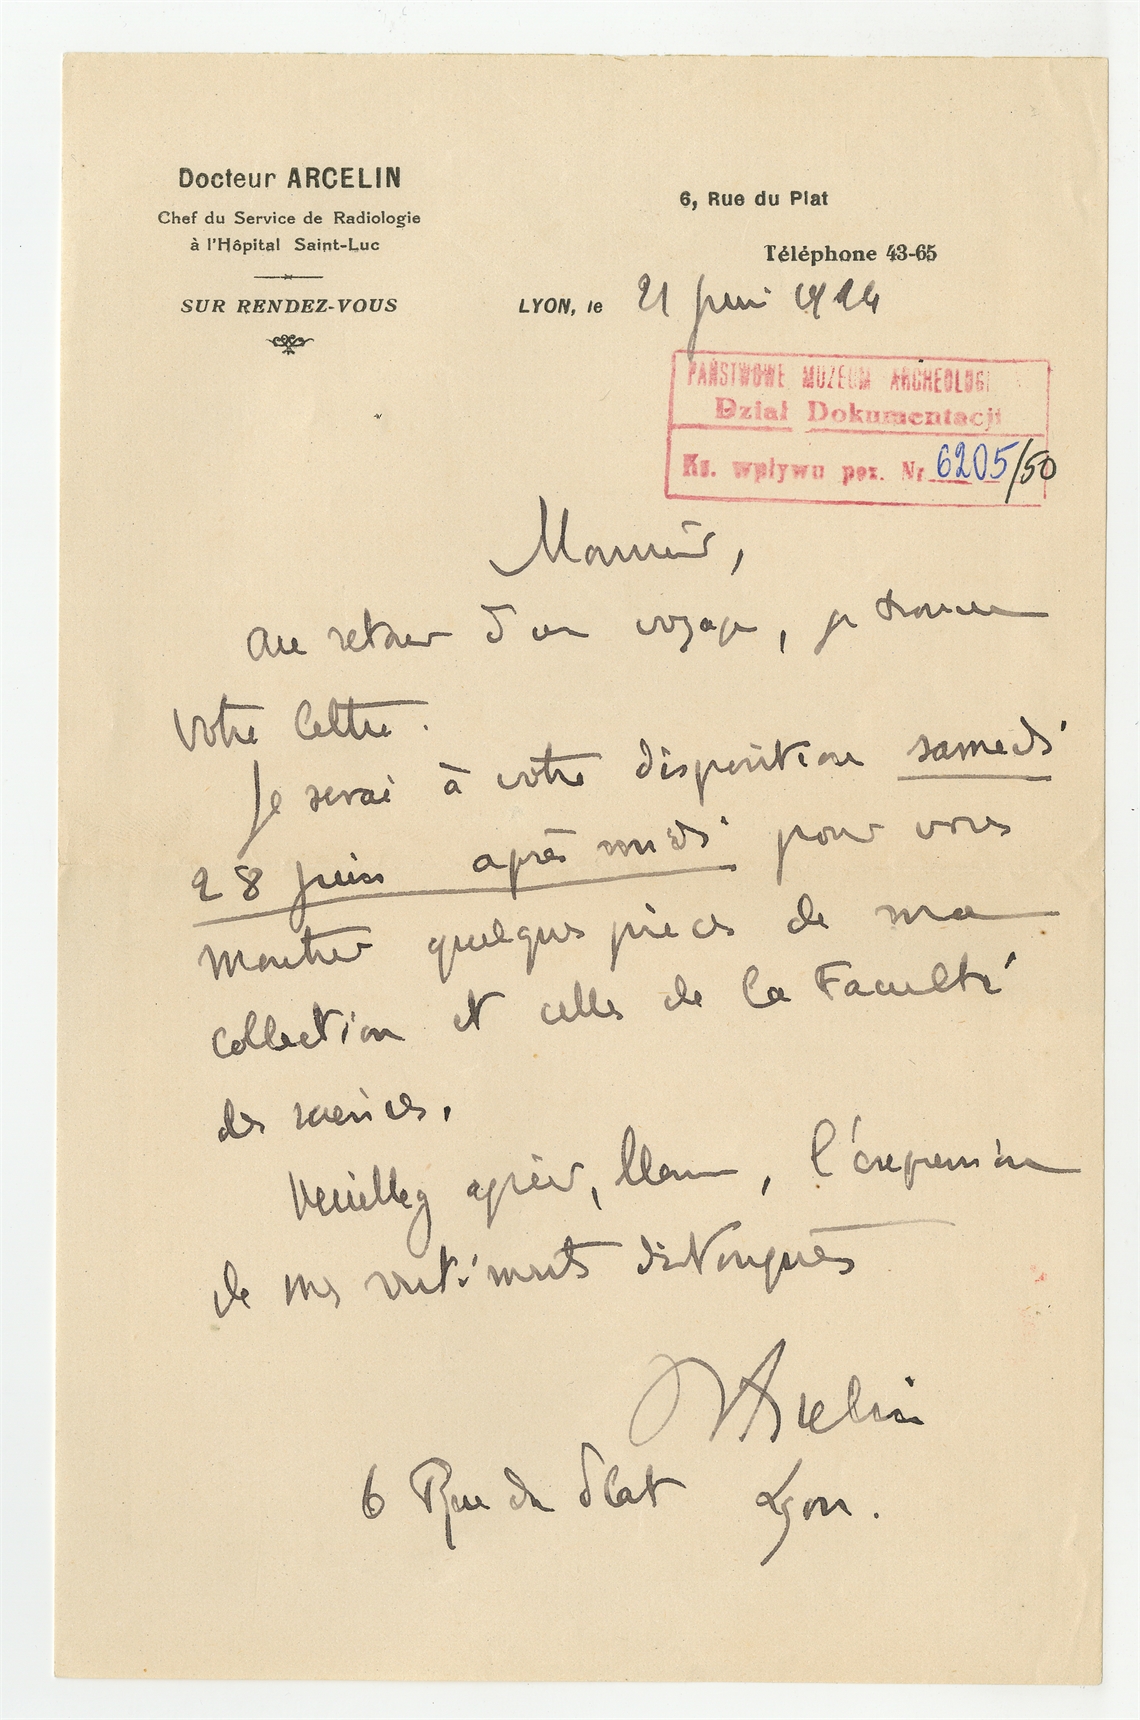 Docteur ARCELIN
Chef du Service de Radiologie
à l'Hôpital Saint-Luc
SUR RENDEZ-VOUS
6, Rue du Plat
Téléphone 43-65
LYON, le 21 juin 1924
PAŃSTWOWE MUZEUM ARCHEOLOGI
Dział Dokumentacji
Ks. wpływu poz. Nr 6205/50
Monsieur,
au retour d'un voyage, je trouve
votre lettre.
Je serai à votre disposition samedi
28 juin après midi pour vous
montrer quelques pièces de ma
collection et celles de la Faculté
des sciences.
Veuillez agréer, Monsieur, l'expression
de mes sentiments distingués
Arcelin
6 Rue du Plat Lyon.